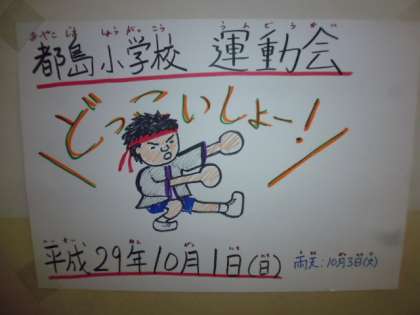 みやこじましょうがっこう うんどうかい
都島小学校 運動会
どっこいしょー!
へいせい ねん がつ にち にち
平成29年10月1日(日)
雨天:10月3日(火)